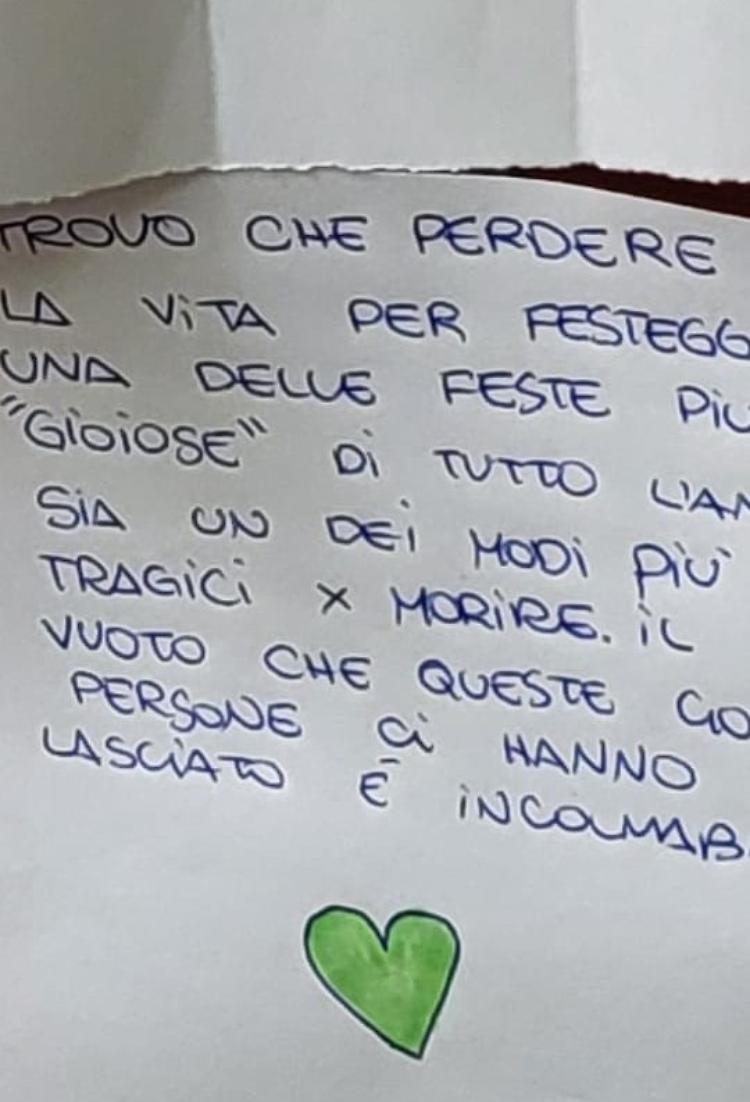 TROVO CHE PERDERE
LA ViTA PER FESTEGG
UNA DELLE FESTE PiU
"GiOiOSE" Di TUTTO L'AN
SiA UN DEi MODi PiÙ
TRAGiCi X MORiRE. iL
VUOTO CHE QUESTE GO
PERSONE Ci HANNO
LASCiATO È iNCOLMAB